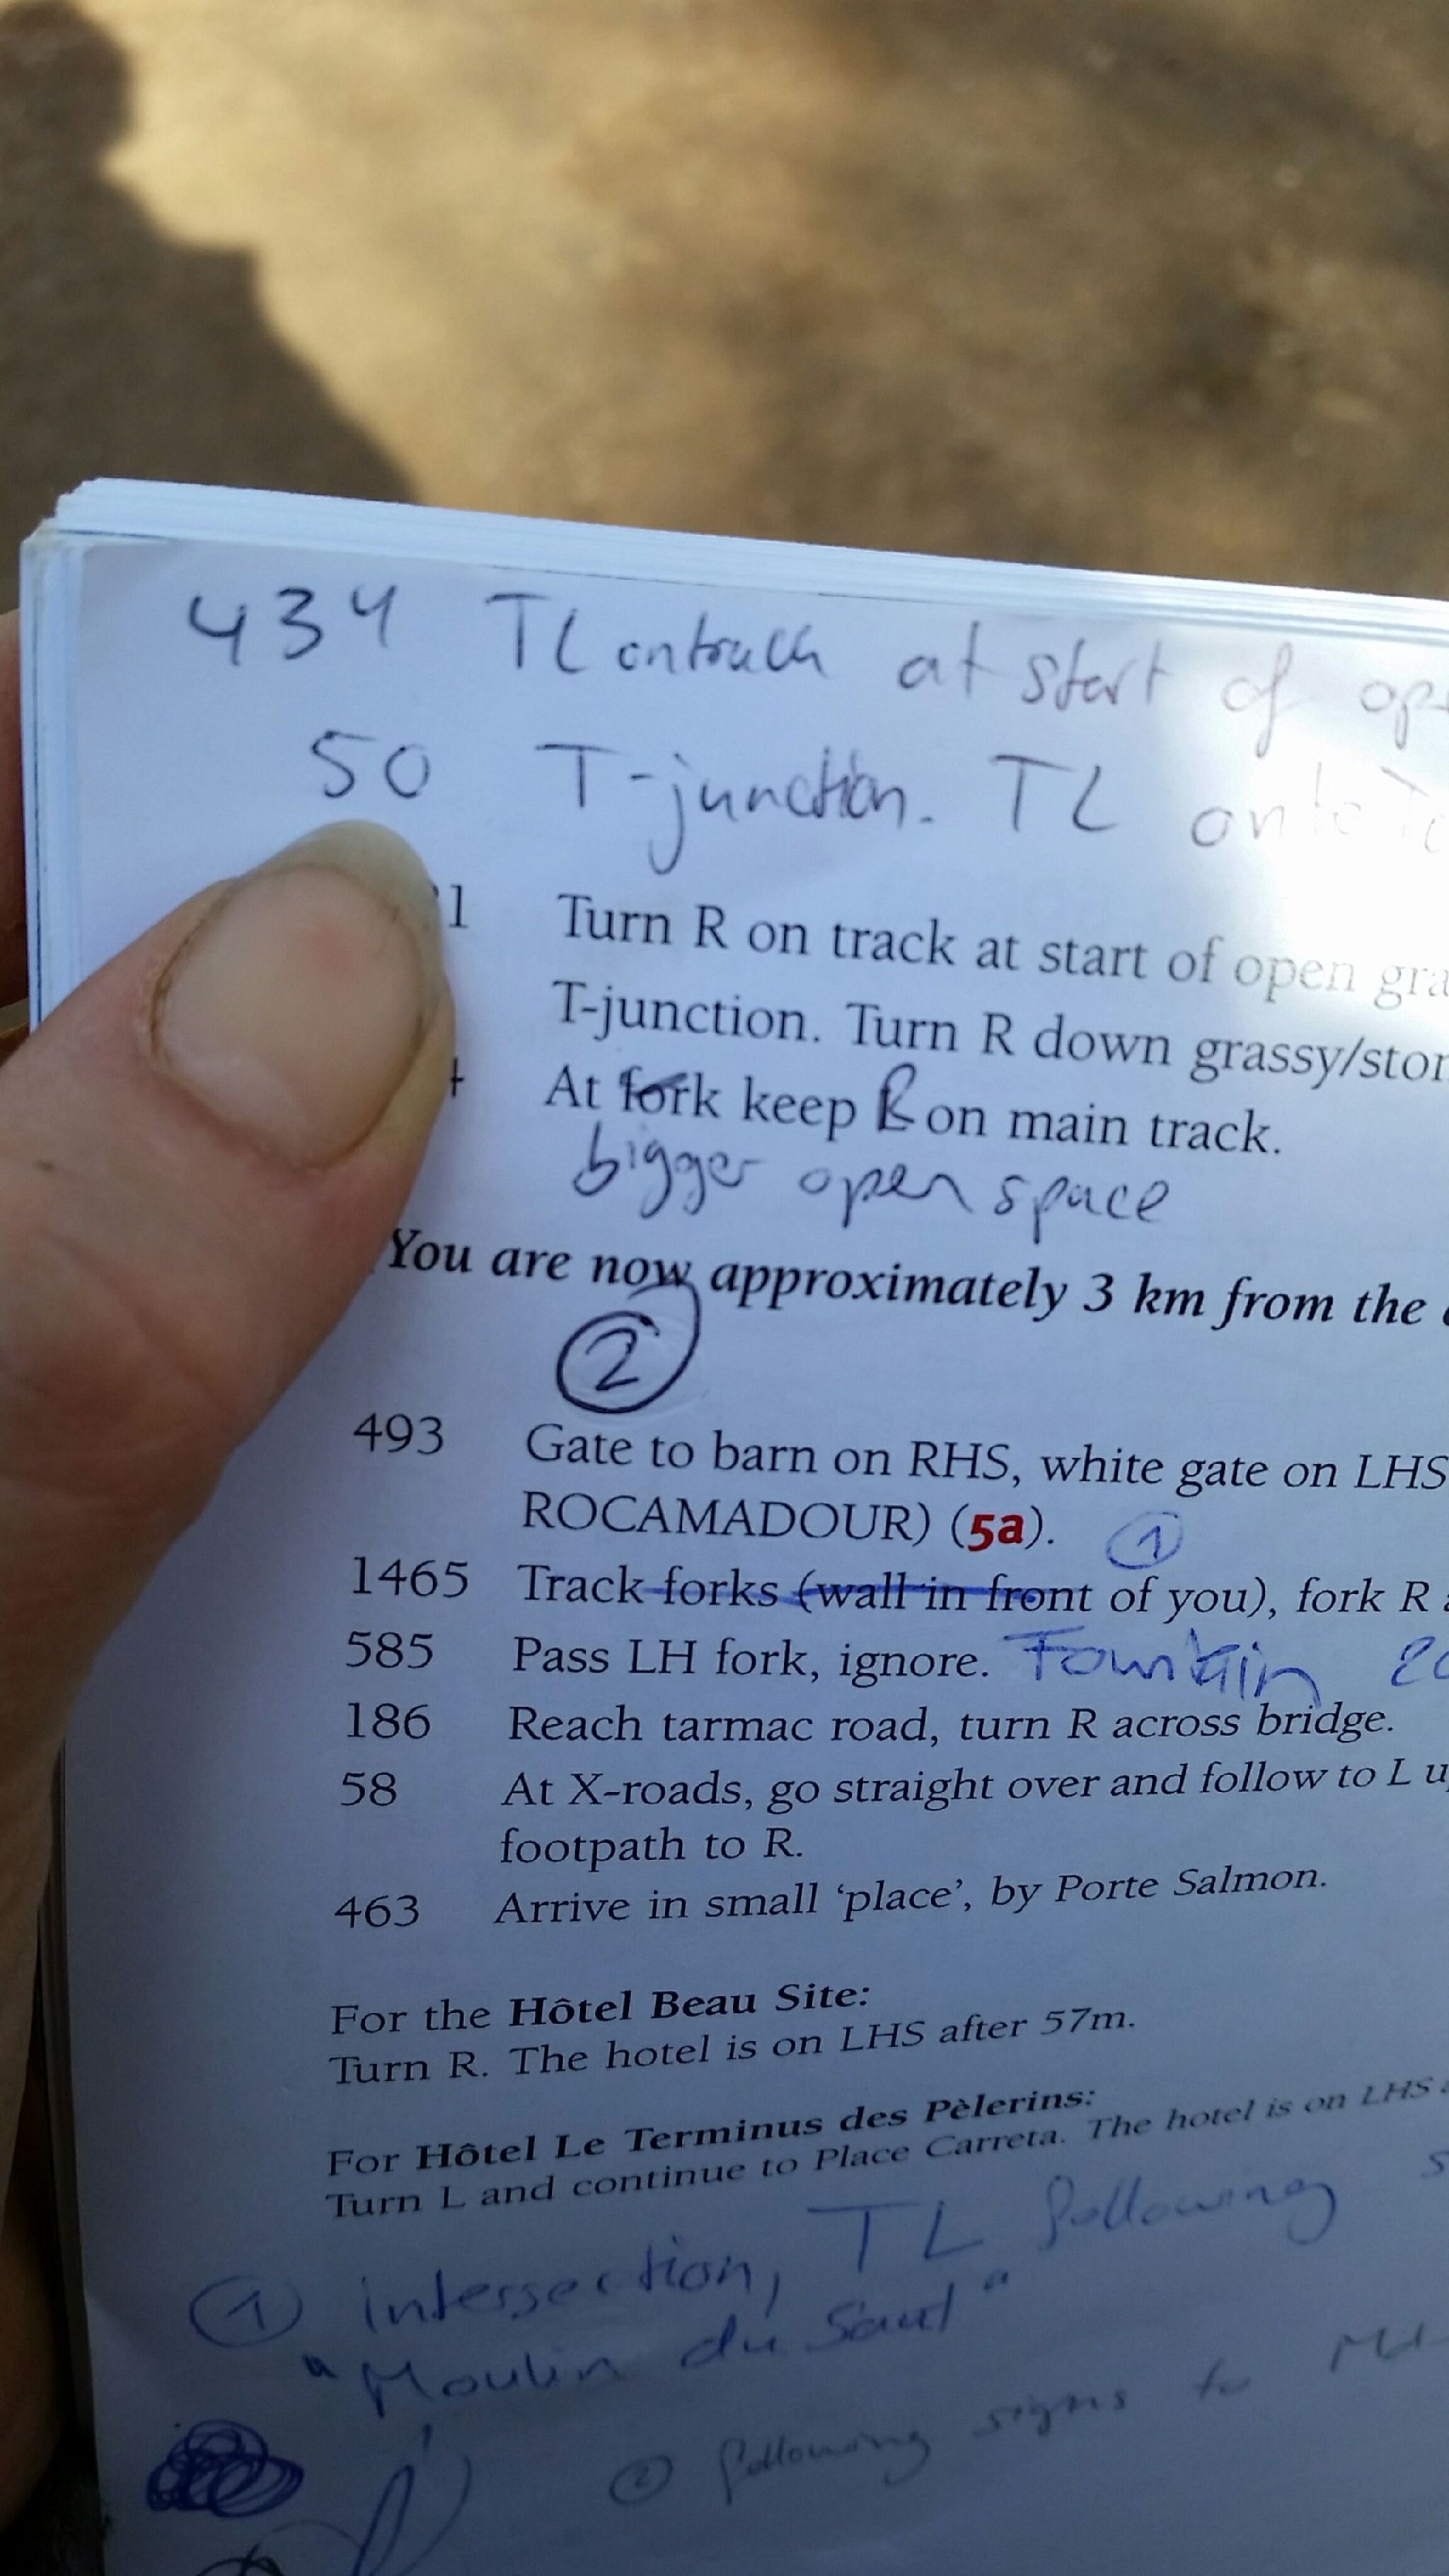 434 TL on track at start of
50 T-junction. TL onto
1 Turn R on track at start of open gra
T-junction. Turn R down grassy/stor
At fork keep R on main track.
bigger open space
You are now approximately 3 km from the
2
493 Gate to barn on RHS, white gate on LHS
ROCAMADOUR) (5a).
1
1465 Track forks (wall in front of you), fork R
585 Pass LH fork, ignore. Fountain
186 Reach tarmac road, turn R across bridge.
58 At X-roads, go straight over and follow to L
footpath to R.
463 Arrive in small ‘place’, by Porte Salmon.
For the Hôtel Beau Site:
Turn R. The hotel is on LHS after 57m.
For Hôtel Le Terminus des Pèlerins:
Turn L and continue to Place Carreta. The hotel is on LHS
1 intersection, TL following
"Moulin du Saut"
2 following signs to